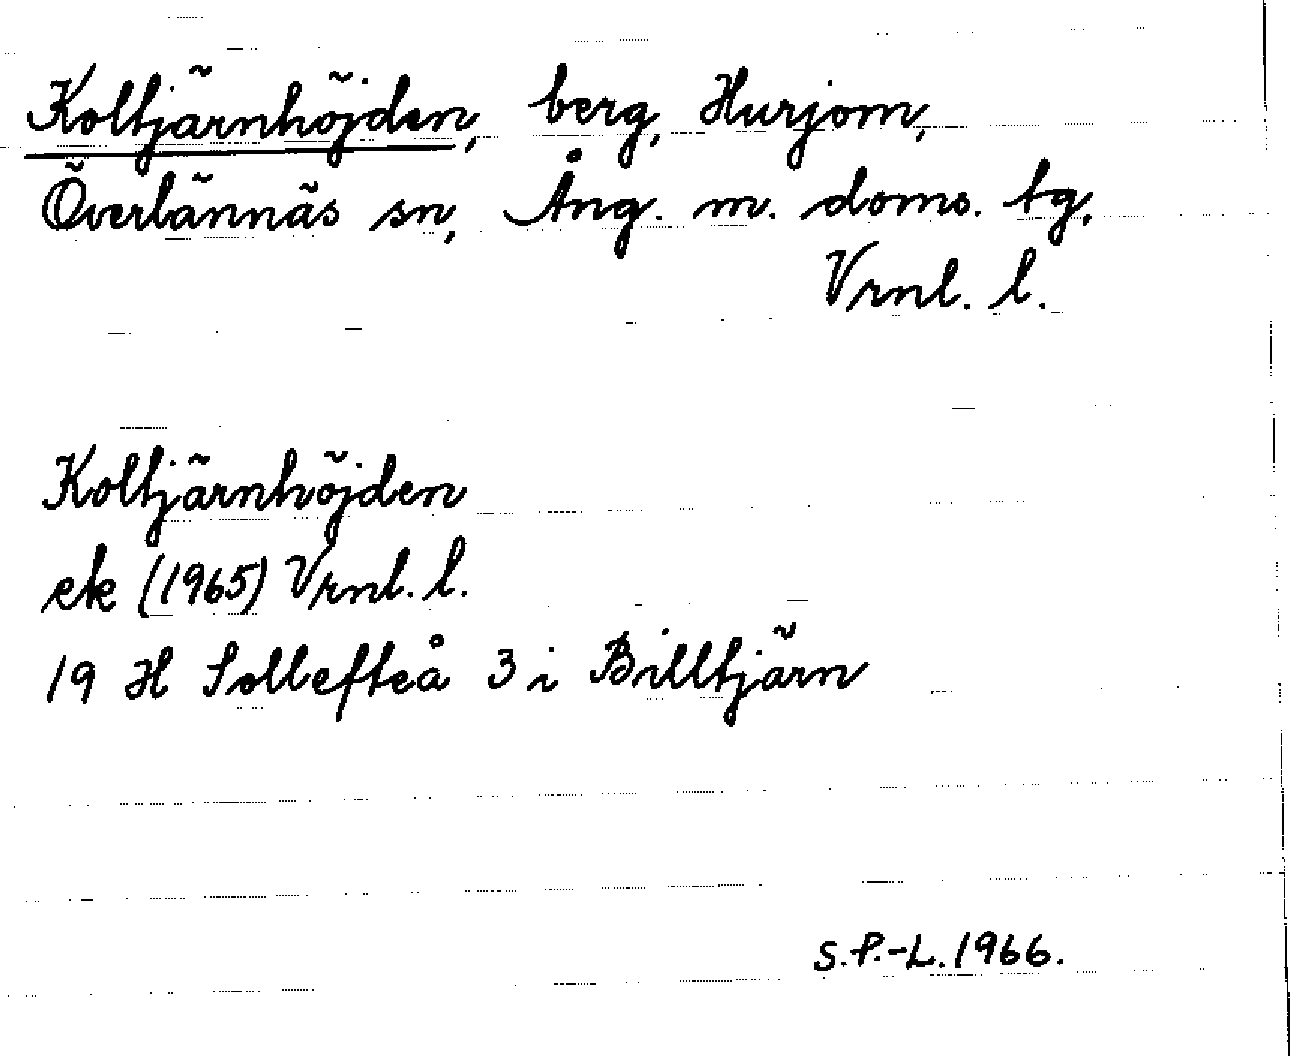 Koltjärnhöjden, berg, Hurjom,
Överlännäs sn, Ång. m. doms. tg,
Vrnl. l.
Koltjärnhöjden
ek (1965) Vrnl. l.
19 H Sollefteå 3 i Billtjärn
S.P.-L. 1966.